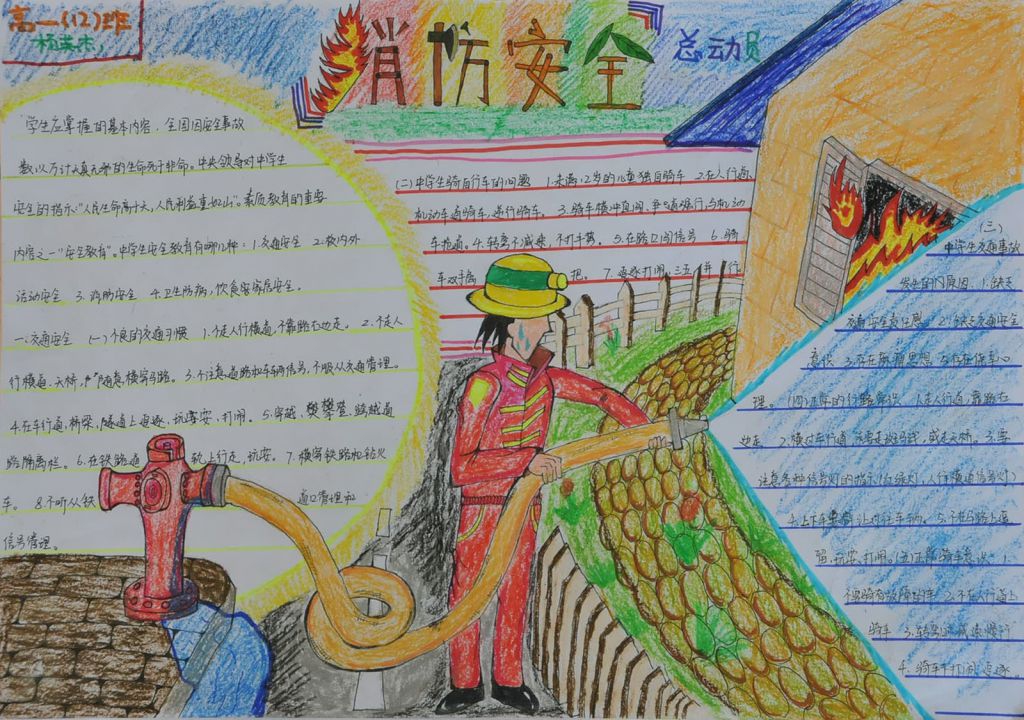 高一(12)班
杨英杰
消防安全
总动员
学生应掌握的基本内容. 全国因安全事故
数以万计天真无邪的生命死于非命。中央领导对中学生
安全的指示:"人民生命高于天,人民利益重如山"。素质教育的重要
内容之一"安全教育"。中学生安全教育有哪几种: 1.交通安全 2.校内外
活动安全 3.消防安全 4.卫生防病,饮食安全。
一.交通安全 (一)不良的交通习惯 1.不走人行横道,不靠路右边走。2.不走人
行横道、天桥,随意横穿马路。3.不注意道路和车辆信号,不服从交通管理。
4.在车行道、桥梁、隧道上追逐、玩耍、打闹。5.穿越、攀登、跨越道
路隔离栏。6.在铁路道轨上行走、玩耍。7.横穿铁路和钻火
车。8.不听从铁道口管理和
信号管理。
(二)中学生骑自行车的问题 1.未满12岁的儿童独自骑车 2.在人行道
机动车道骑车,逆行骑车。3.骑车横冲直闯,争道强行,与机动
车抢道。4.转弯不减速,不打手势。5.在路口闯信号 6.骑
车双手离把。7.追逐打闹,三五并行
(三)
中学生交通事故
发生的内原因 1.缺乏
交通安全责任感 2.缺乏交通安全
意识 3.存在麻痹思想 5.存在侥幸心
理。(四)正常的行路常识 1.走人行道,靠路右
边走 2.横过车行道 走斑马线,或走天桥。3.要
注意各种信号灯的指示(红绿灯,人行横道信号灯)
4.上下车 让过往车辆。5.不在马路上逗
留、玩耍、打闹。(五)正确骑车意识 1.
不要骑有故障的车 2.不在人行道上
骑车 3.转弯减速慢行
4.骑车不打闹追逐。